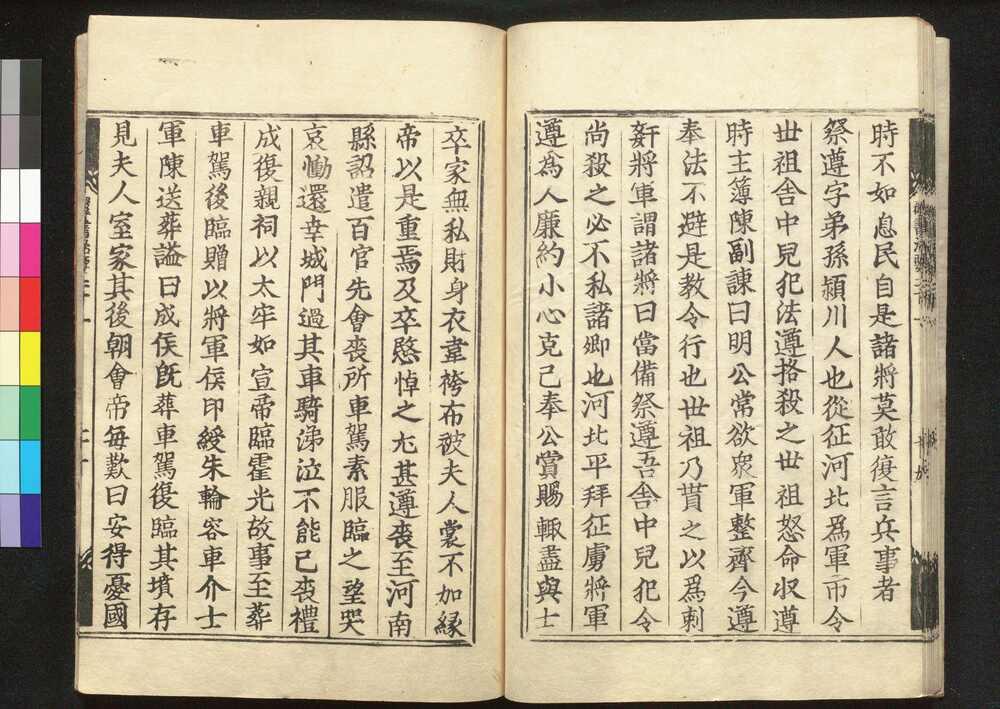 時不如息民自是諸將莫敢復言兵事者
祭遵字弟孫潁川人也從征河北爲軍市令
世祖舍中兒犯法遵挌殺之世祖怒命収遵
時主簿陳副諫曰明公常欲衆軍整齊今遵
奉法不避是教令行也世祖乃貰之以爲刺
姧將軍謂諸將曰當備祭遵吾舍中兒犯令
尚殺之必不私諸卿也河北平拜征虜將軍
遵爲人廉約小心克己奉公賞賜輙盡與士
卒家無私財身衣韋袴布被夫人裳不加縁
帝以是重焉及卒愍悼之尤甚遵喪至河南
縣詔遣百官先會喪所車駕素服臨之望哭
哀慟還幸城門過其車騎涕泣不能已喪禮
成復親祠以太牢如宣帝臨霍光故事至葬
車駕復臨贈以將軍侯印綬朱輪容車介士
軍陳送葬謚曰成侯旣葬車駕復臨其墳存
見夫人室家其後朝會帝每歎曰安得憂國